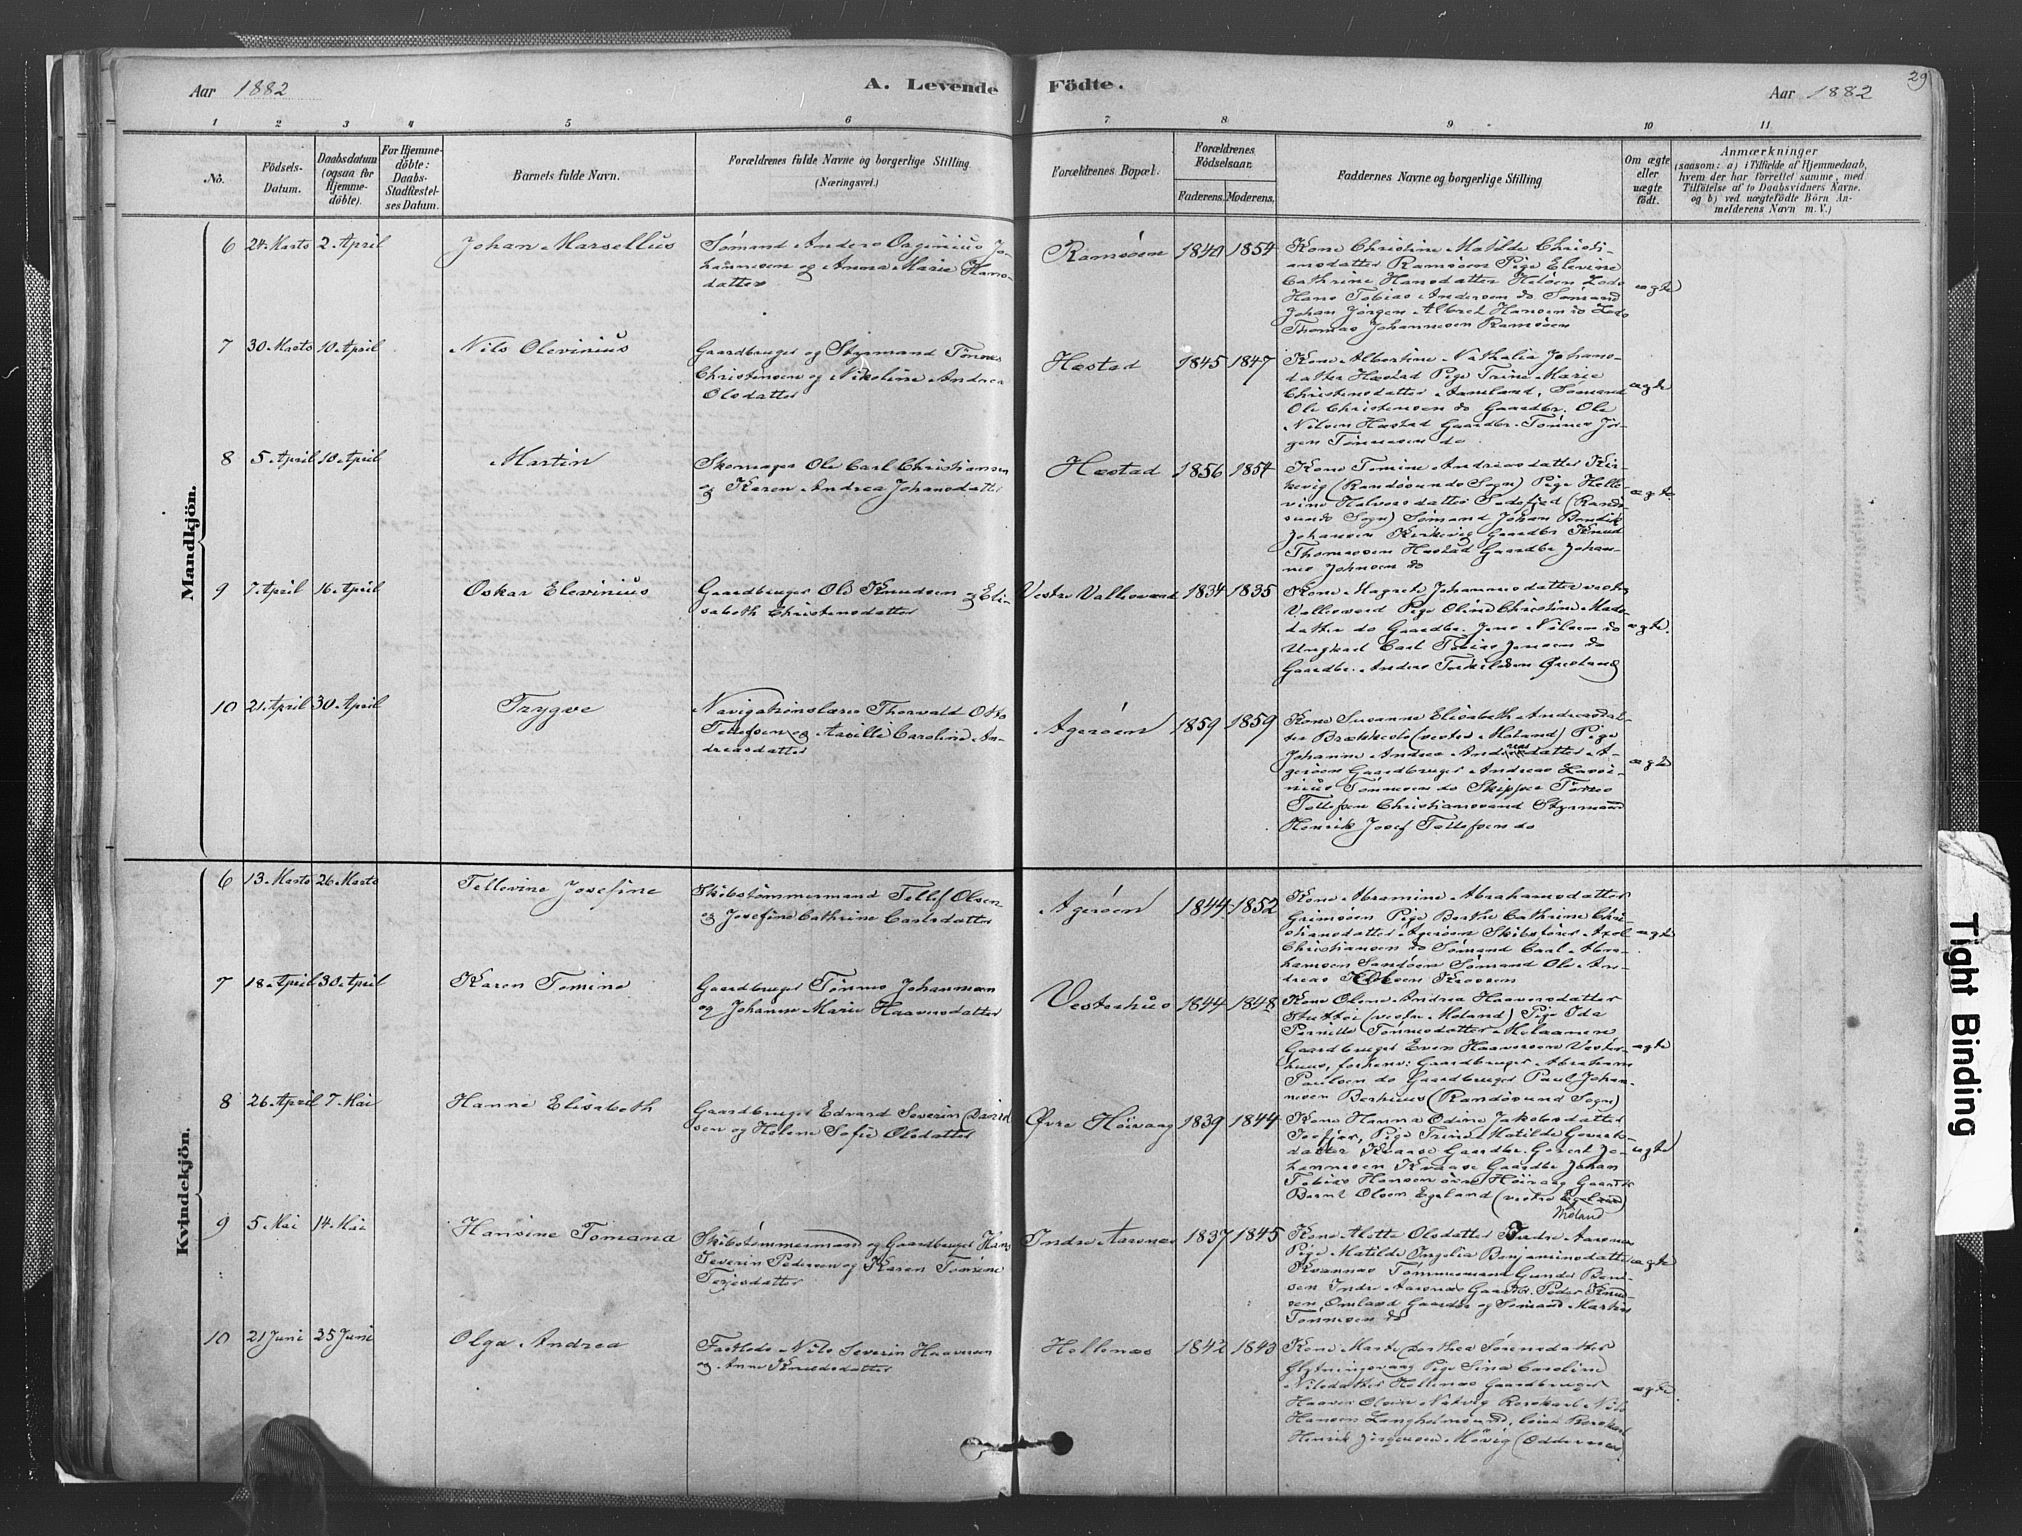 Aar 1882
A. Levende Födte.
Aar 1882
29
1 2 3 4 5 6 7 8 9 10 11
No.
Födsels-Datum.
Daabsdatum (ogsaa for Hjemmedöbte).
For Hjemmedöbte: Daabs-Stadfæstelses Datum.
Barnets fulde Navn.
Forældrenes fulde Navne og borgerlige Stilling.
(Næringsvei.)
Forældrenes Bopæl.
Forældrenes Födselsaar.
Faderens. Moderens.
Faddernes Navne og borgerlige Stilling
Om ægte eller uægte födt.
Anmærkninger
(saasom: a) i Tilfælde af Hjemmedaab, hvem der har forrettet samme, med Tilföielse af to Daabsvidners Navne, og b) ved uægtefödte Börn Anmelderens Navn m. V.)
Mandkjön.
6 24 Marts 2 April
Johan Marsellius
Sømand Anders Orginius Jo-
hannesen og Anna Marie Hans-
datter
Ramsøen 1840 1854
Kone Christine Matilde Christi-
ansdatter Ramsøen Pige Elevine
Cathrine Hansdatter Heløen Lods
Hans Tobias Andersen do Sømand
Johan Jörgen Albret Hansen do Lods
Thomas Johannesen Ramsøen
ægte
7 30 Marts 10 April
Nils Olevinius
Gaardbruger og Styrmand Tønnes
Christensen og Nikoline Andrea
Olsdatter
Hæstad 1845 1847
Kone Albertine Nathalia Johans-
datter Hæstad Pige Trine Marie
Christensdatter Aamland, Sømand
Ole Christensen do Gaardbr. Ole
Nilsen Hæstad Gaardbr. Tønnes Jör-
gen Tønnesen do.
ægte
8 5 April 10 April
Martin
Skomager Ole Carl Christiansen
og Karen Andrea Johansdatter
Hæstad 1856 1854
Kone Tomine Andreasdatter Kir-
kevig (Randøsunds Sogn) Pige Helle-
vine Halvorsdatter Sodefjed (Randø-
sunds Sogn) Sømand Johan Bendik
Johansen Kirkevig Gaardbr Knud
Thomassen Hæstad Gaardbr Johan-
nes Johnsen do
ægte
9 7 April 16 April
Oskar Elevinius
Gaardbruger Ole Knudsen og Eli-
sabeth Christensdatter
Vestre Vallesværd 1834 1835
Kone Magrete Johannesdatter vestre
Vallesværd Pige Oline Christine Mads-
datter do Gaardbr. Jens Nilsen do
Ungkarl Carl Tobias Jensen do
Gaardbr. Anders Terkildsen
ægte.
10 21 April 30 April
Trygve
Navigationslærer Thorvald Otto
Tellefsen og Aasille Caroline An-
dreasdatter
Agerøen 1859 1859
Kone Susanne Elisabeth Andreasdat-
ter Brækkestø (vestre Moland) Pige
Johanne Andrea Andreasdatter A-
gerøen Gaardbruger Andreas Lavri-
nius Tønnesen do Skipper Tønnes
Tellefsen Christianssand Styrmand
Henrik Josef Tellefsen do
ægte
Kvindekjön.
6 13 Marts 26 Marts
Tellevine Josefine
Skibstømmermand Tellef Olsen
og Josefine Cathrine Carlsdatter
Agerøen 1844 1852
Kone Abramine Abrahamsdatter
Grimsøen Pige Berthe Cathrine Chri-
stiansdatter Agerøen Skibsfører Axel
Christiansen do Sømand Carl Abra-
hamsen Sandøen Sømand Ole An-
dreas Olsen Krossen
ægte
7 18 April 30 April
Karen Tomine
Gaardbruger Tønnes Johannesen
og Johanne Marie Haaversdatter
Vesterhus 1844 1848
Kone Olene Andrea Haaversdatter
Stuttøi (vestre Moland) Pige Ida
Pernille Tønnesdatter
Gaardbruger Even Haaversen Vester-
huus, forhenv: Gaardbruger Abraham
Paulsen do Gaardbruger Paul Johan-
nesen Berhuus (Randøsund Sogn)
ægte
8 26 April 7 Mai
Hanne Elisabeth
Gaardbruger Edvard Severin David-
sen og Helene Sofie Olsdatter
Øvre Høivaag 1839 1844
Kone Hanna Odine Jakobsdatter
Isefjær, Pige Trine Matilde Goverts-
datter Kvaase Gaardbr. Govert Jo-
hannesen Kvaase Gaardbr Johan
Tobias Hansen øvre Høivaag Gaardbr
Bernt Olsen Egeland (vestre
Moland
ægte
9 5 Mai 14 Mai
Hansine Tomana
Skibstømmermand og Gaardbruger Hans
Severin Pedersen og Karen Tomine
Terjesdatter
Indre Aarsnes 1837 1845
Kone Mette Olsdatter Indre Aarsnes
Pige Matilde Orgelia Benjaminsdatter
Kvannes Tømmermand Gunder Ben-
sen Indre Aarsnes Gaardbr. Peder Knud-
sen Omland Gaardbr og Sømand Martin
Tønnesen do
ægte
10 21 Juni 25 Juni
Olga Andrea
Fastlods Nils Severin Haaversen
og Anne Knudsdatter
Hellenæs 1842 1843
Kone Marte Dorthea Sørensdatter
Pige Sina Caroline
Nilsdatter Hellenæs Gaardbruger
Haaver Olsen Natvig Reservelods Nils
Hansen Langholmsund,
Henrik Jörgensen Møvig (Oddernes
ægte
Tight Binding